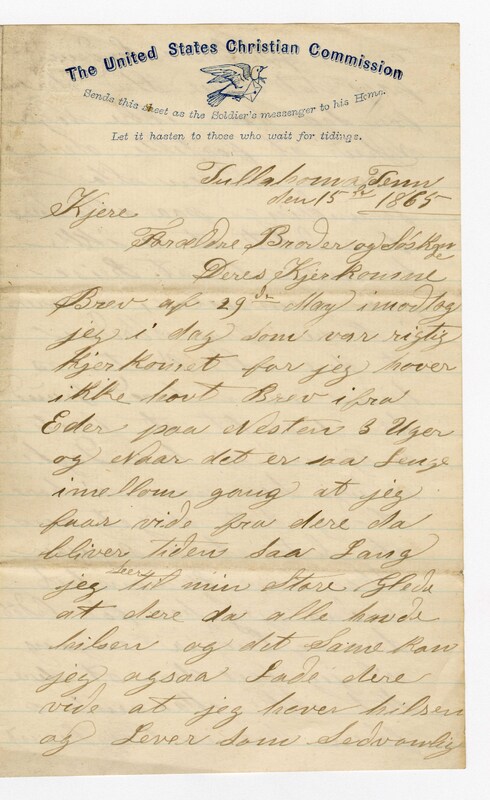 The United States Christian Commission
Sends this sheet as the Soldier's messenger to his Home.
Let it hasten to those who wait for tidings.
Tullahoma Tenn
den 15 1865
Kjere
Forældre Broder og Søskende
Deres Kjerkomne
Brev af 29de May imodtog
jeg i dag som var rigtig
kjerkomet for jeg haver
ikke havt Brev ifra
Eder paa Nesten 3 Uger
og Naar det er saa Lenge
imellom gang at jeg
faar vide fra dere da
bliver tiden saa Lang
jeg seer til min Store Glede
at dere da alle havde
hilsen og det Same kan
jeg agsaa Lade dere
vide at jeg haver hilsen
og Lever som Sedvanlig